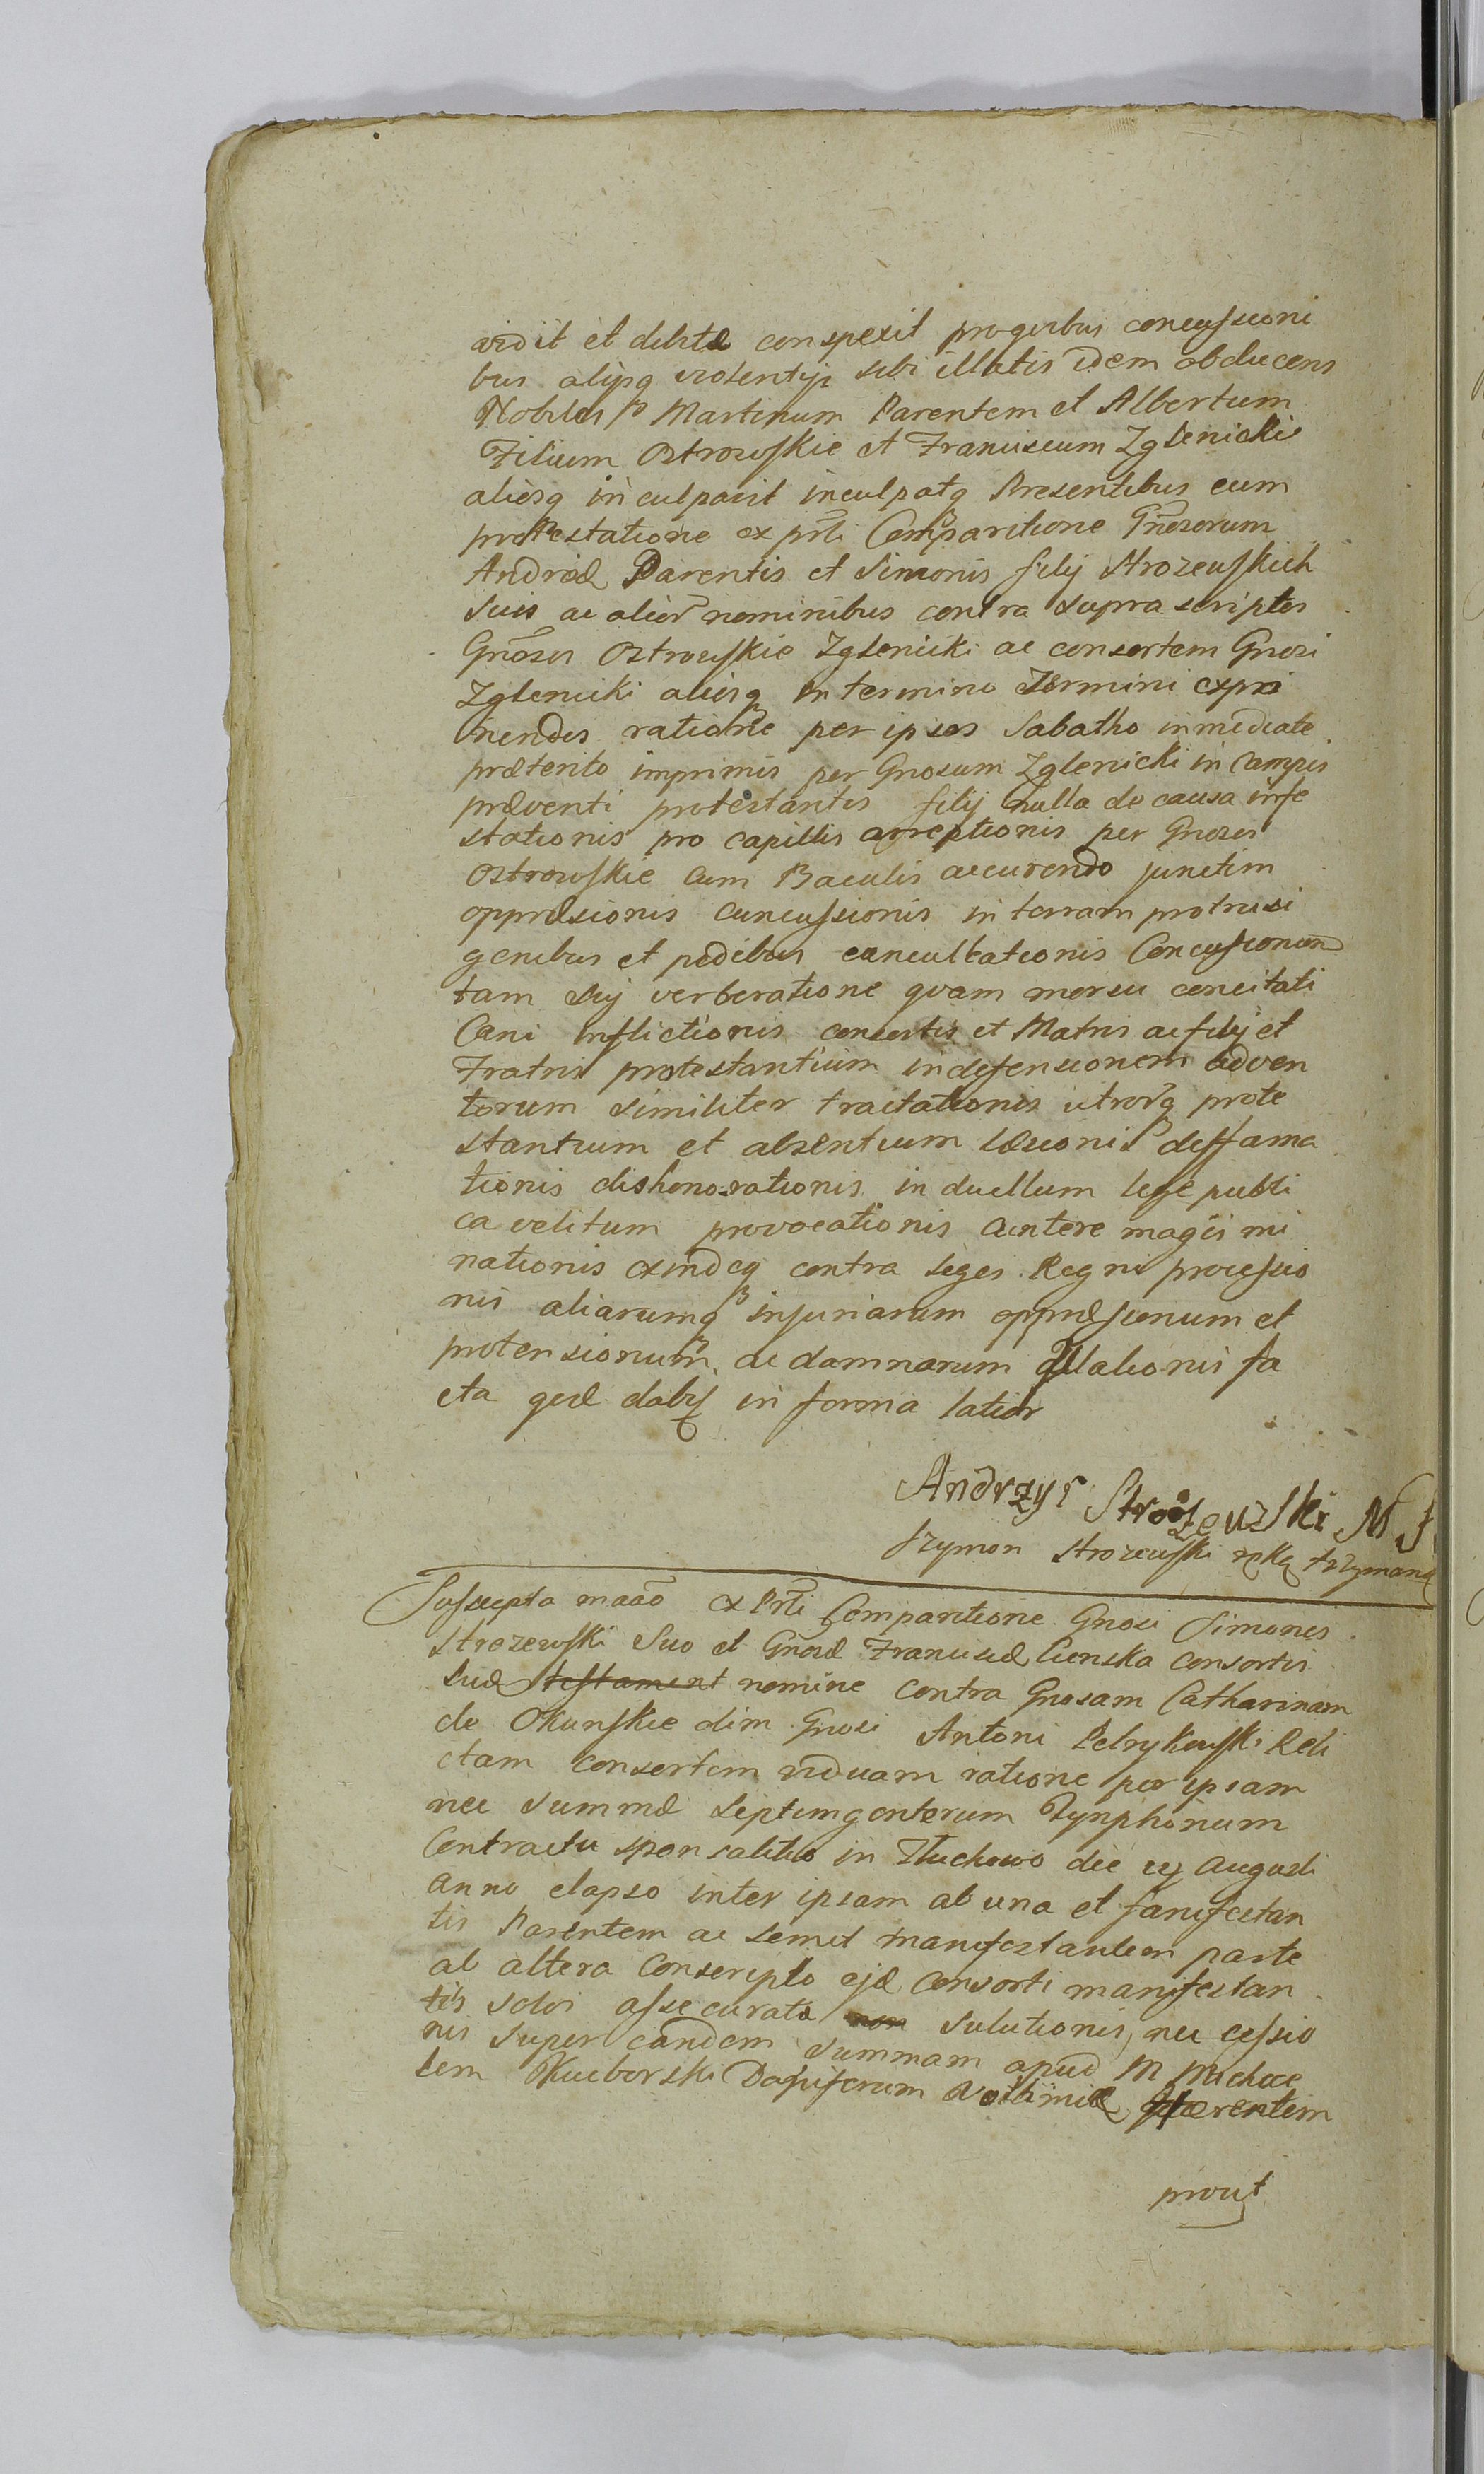 vidit et debite conspexit pro quibus concussioni
bus alijsq violentijs sibi illatis idem obducens
Nobiles Martinum Parentem et Albertum
Filium Ostrowskie et Franciscum Zglenicki
aliosq inculpavit inculpatq Presentibus cum
protestatione ex prti Comparitione Gnosorum
Andreæ Parentis et Simonis filij Strozewskich
suis ac alior nominibus contra supra scriptos
Gnosos Ostrowskie Zglenicki ac consortem Gnosi
Zglenicki aliosq in termino Termini expri
mendos ratione per ipsos Sabatho inmediate
prætento imprimis per Gnosum Zglenicki in Campis
præventi protestantis filij nulla de causa infe
stationis pro capillis arreptionis per Gnosos
Ostrowskie cum Baculis accurendo junctim
oppræsionis concussionis in terram protrusi
genibus et pedibus conculcationis Concussionum
tam sui verberatione quam morsu concitati
Cani inflictionis consortis et Matris ac filij et
Fratris protestantium in defensionem adven
torum similiter tractationis utrorq prote
stantium et absentium læsionis deffama
tionis dishonorationis in duellum lege publi
ca velitum provocationis antere magis mi
nationis exindeq contra leges Regni processio
nis aliarumq injuriarum oppræssionum et
protensionum ac damnorum illationis fa
cta in forma latior
Andrzyi Strozewski M
Szymon Strozewski ręką trzymaną
Suscepta ex Prti Comparitione Gnosi Simonis
Strozewski Suo et Gnosæ Franciscæ Cienska Consortis
suæ testament nomine contra Gnosam Catharinam
de Okunskie olim Gnosi Antoni Petrykowski Reli
ctam consortem viduam ratione per ipsam
nec summæ septingentorum Tynphonum
Contractu sponsalitio in Tłuchowo die Augusti
anno elapso inter ipsam ab una et manifestan
tis Parentem ac semet manifestantem parte
ab altera Conscripto ejæ consorti manifestan
tis solvi assecurata non solutionis, nec cessio
nis super eandem summam apud M Michae
lem Kuborski Dapiferum hærentem
prout